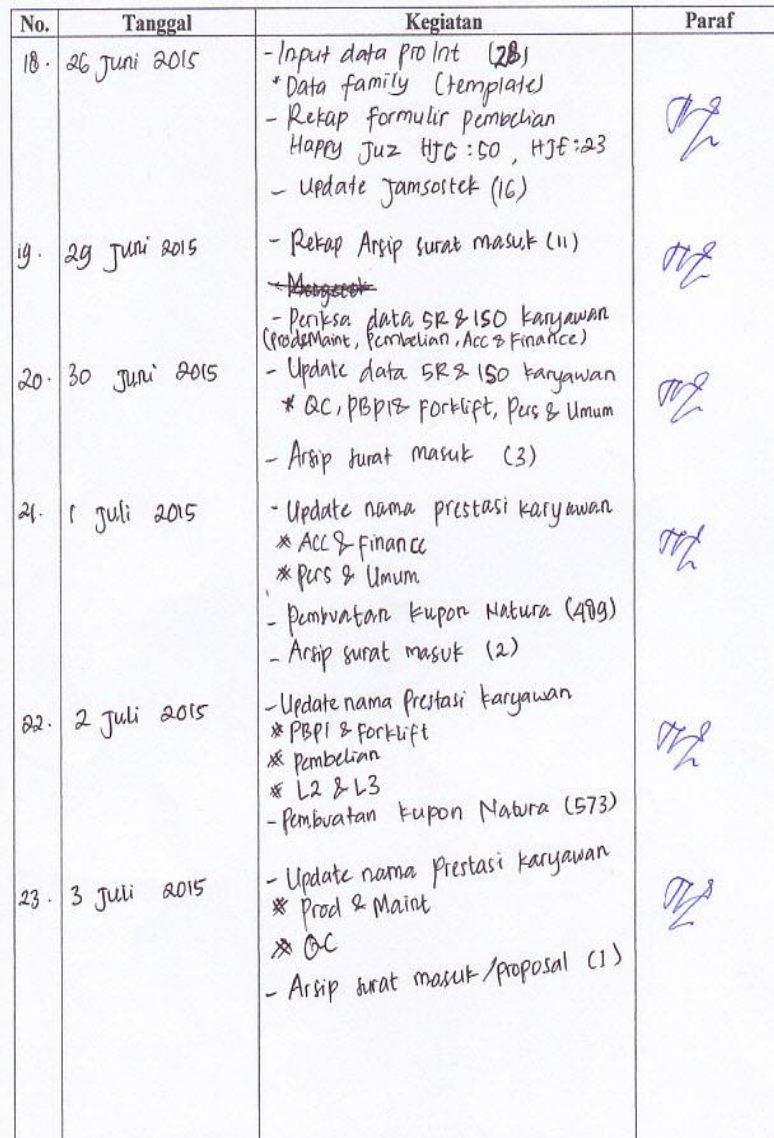 No. Tanggal Kegiatan Paraf
18. 26 Juni 2015 - Input data pro Int (28)
* Data family (template)
- Rekap formulir pembelian
Happy Juz HJC : 50 , HJE : 23
- Update Jamsostek (16)
19. 29 Juni 2015 - Rekap Arsip surat masuk (11)
- Periksa data 5R & ISO karyawan
(Prod&Maint, Pembelian, Acc & Finance)
20. 30 Juni 2015 - Update data 5R & ISO karyawan
* QC, PBPI & Forklift, Pers & Umum
- Arsip surat masuk (3)
21. 1 Juli 2015 - Update nama prestasi karyawan
* ACC & Finance
* Pers & Umum
- Pembuatan kupon Natura (489)
- Arsip surat masuk (2)
22. 2 Juli 2015 - Update nama Prestasi karyawan
* PBPI & Forklift
* Pembelian
* L2 & L3
- Pembuatan kupon Natura (573)
23. 3 Juli 2015 - Update nama Prestasi karyawan
* Prod & Maint
* QC
- Arsip surat masuk/proposal (1)